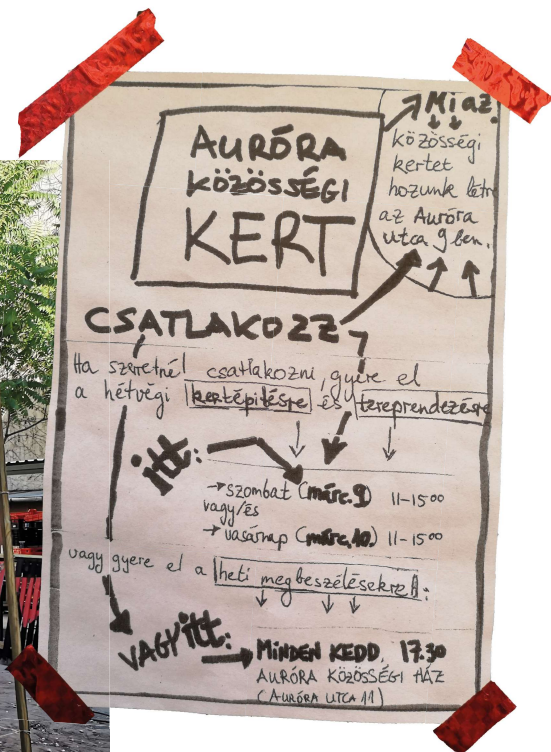 AURÓRA
KÖZÖSSÉGI
KERT
Mi az.
közösségi
kertet
hozunk létre
az Auróra
utca 9 ben.
CSATLAKOZZ
Ha szeretnél csatlakozni, gyere el
a hétvégi kertépítésre és tereprendezésre
itt:
szombat (márc. 9) 11-15⁰⁰
vagy/és
vasárnap (márc. 10.) 11-15⁰⁰
vagy gyere el a heti megbeszélésekre:
VAGY itt:
MINDEN KEDD, 17.30
AURÓRA KÖZÖSSÉGI HÁZ
(AURÓRA UTCA 11)